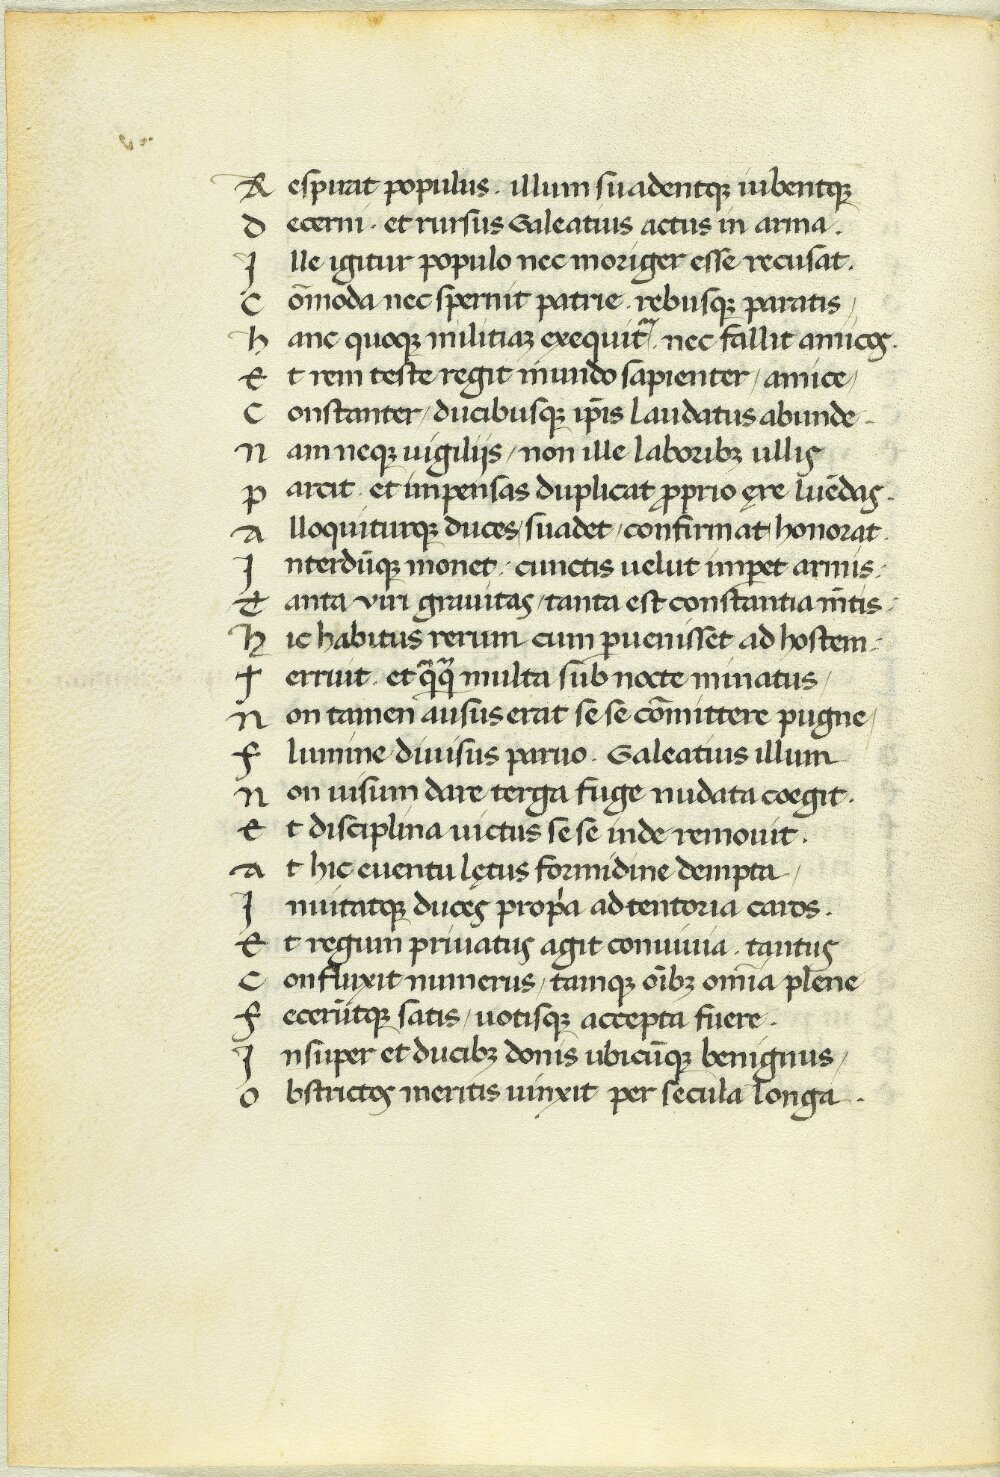 R espirat populus. illum suadentqꝫ iubentqꝫ
D ecerni. et rursus Galeatius actus in arma.
I lle igitur populo nec moriger esse recusat.
C ōmoda nec spernit patrie. rebusqꝫ paratis/
h anc quoqꝫ militiaꝫ exequit᷑. nec fallit amicos.
E t rem teste regit mundo sapienter/ amice/
C onstanter/ ducibusqꝫ ip̄is laudatus abunde.
N am neqꝫ uigiliis/ non ille laboribꝫ ullis
P arcit. et impensas duplicat ꝓprio ęre luēdas.
A lloquiturqꝫ duces/ suadet/ confirmat honorat.
I nterdūqꝫ monet. cunctis uelut imꝑet armis.
T anta viri grauitas/ tanta est constantia m̄tis.
H ic habitus rerum cum ꝑuenisset ad hostem.
T erruit. et qᷓqᷓ multa sub nocte minatus/
N on tamen ausus erat se se cōmittere pugne/
F lumine diuisus paruo. Galeatius illum
N on uisum dare terga fuge nudata coegit.
E t disciplina uictus se se inde remouit.
A t hic euentu lętus formidine dempta/
I nuitatqꝫ duces propͥa ad tentoria caros.
E t regum priuatus agit conuiuia. tantus
C onfluxit numerus/ tamqꝫ oībꝫ omīa plene
F ecerūtqꝫ satis/ uotisqꝫ accepta fuere.
I nsuper et ducibꝫ donis ubicūqꝫ benignus/
O bstrictos meritis uinxit per secula longa.